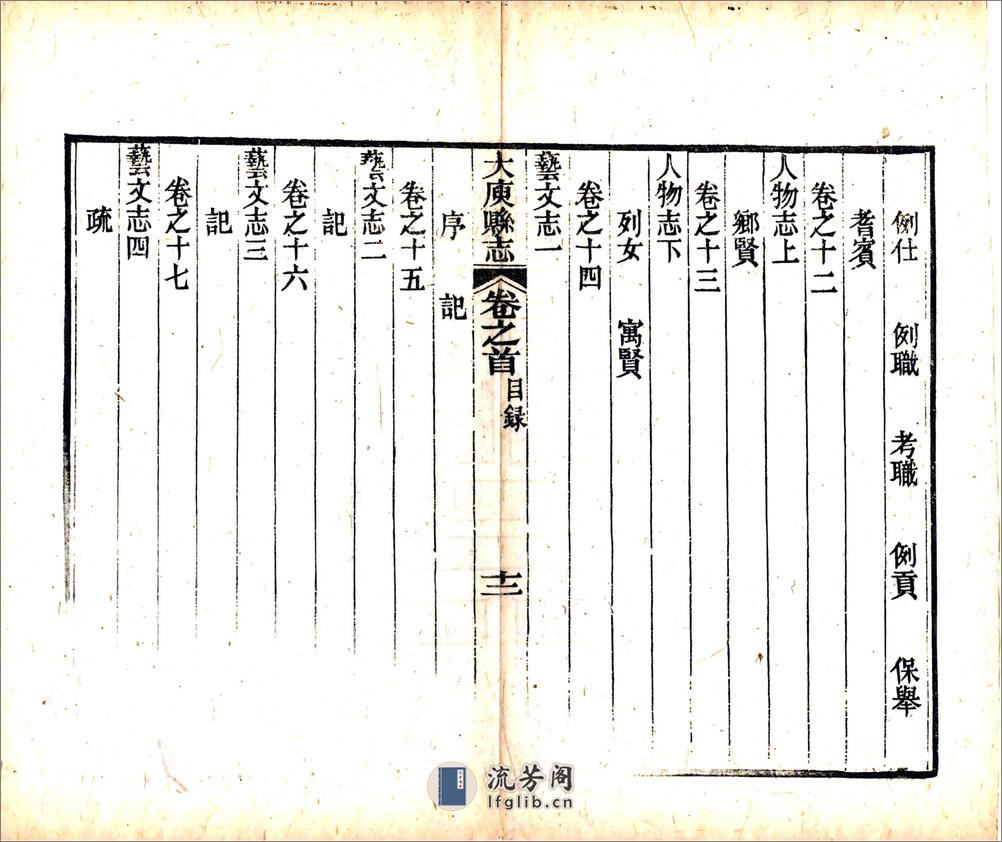 例仕　例職　考職　例貢　保舉
耆賓
卷之十二
人物志上
鄉賢
卷之十三
人物志下
列女　寓賢
卷之十四
藝文志一
大庾縣志　卷之首　目録　十二
序　記
卷之十五
藝文志二
記
卷之十六
藝文志三
記
卷之十七
藝文志四
疏
流芳阁
lfglib.cn